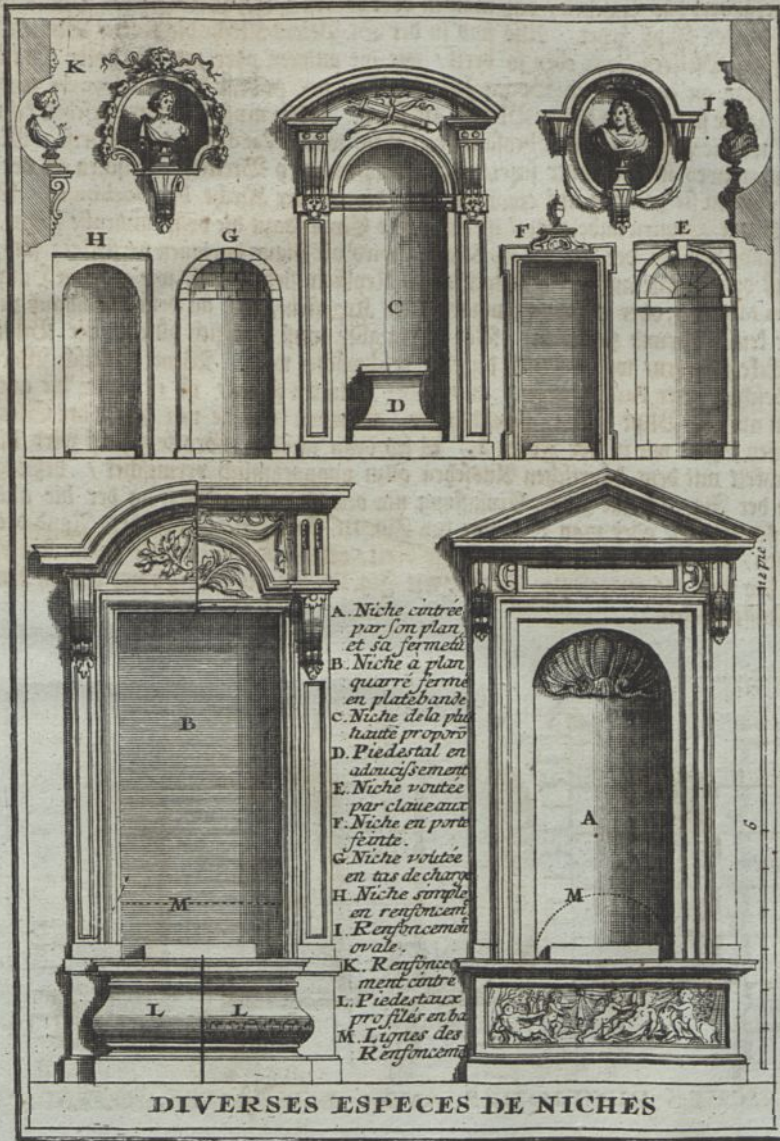 K
I
H
G
F
E
C
D
12 pie.
A. Niche cintrée
par son plan
et sa fermetu
B. Niche à plan
quarré fermé
en platebande
C. Niche de la plu
hauté proporō
D. Piedestal en
adoucissement
E. Niche voutée
par claueaux
F. Niche en porte
feinte.
G. Niche voutée
en tas de charge
H. Niche simple
en renfoncem
I. Renfoncemen
ovale.
K. Renfonce
ment cintré
L. Piedestaux
profilés en ba
M. Lignes des
Renfoncem
B
A
6
M
M
L
L
DIVERSES ESPECES DE NICHES